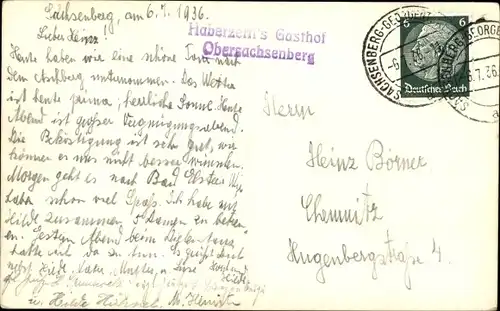 Sachsenberg, am 6.7.1936.
Lieber Heinz!
Heute haben wir eine schöne Tour nach
dem Aschberg unternommen. Das Wetter
ist heute prima, herrliche Sonne. Heute
Abend ist großer Vergnügungsabend.
Die Beköstigung ist sehr gut, wir
können es uns nicht besser wünschen.
Morgen geht es nach Bad Elster. Wir
haben schon viel Spaß. Ich habe mit
Hilde zusammen 5 Lampen zu
Gestern Abend beim
hatte ich da zu tun. Es grüßt Dich
nebst Hilde, Vater, Mutter, u.
Hilde
u. Hilde M.
Haberzettl's Gasthof
Obersachsenberg
SACHSENBERG-GEORGENTHAL
6
6
Deutsches Reich
Herrn
Heinz Börner
Chemnitz
Hugenbergstraße 4.